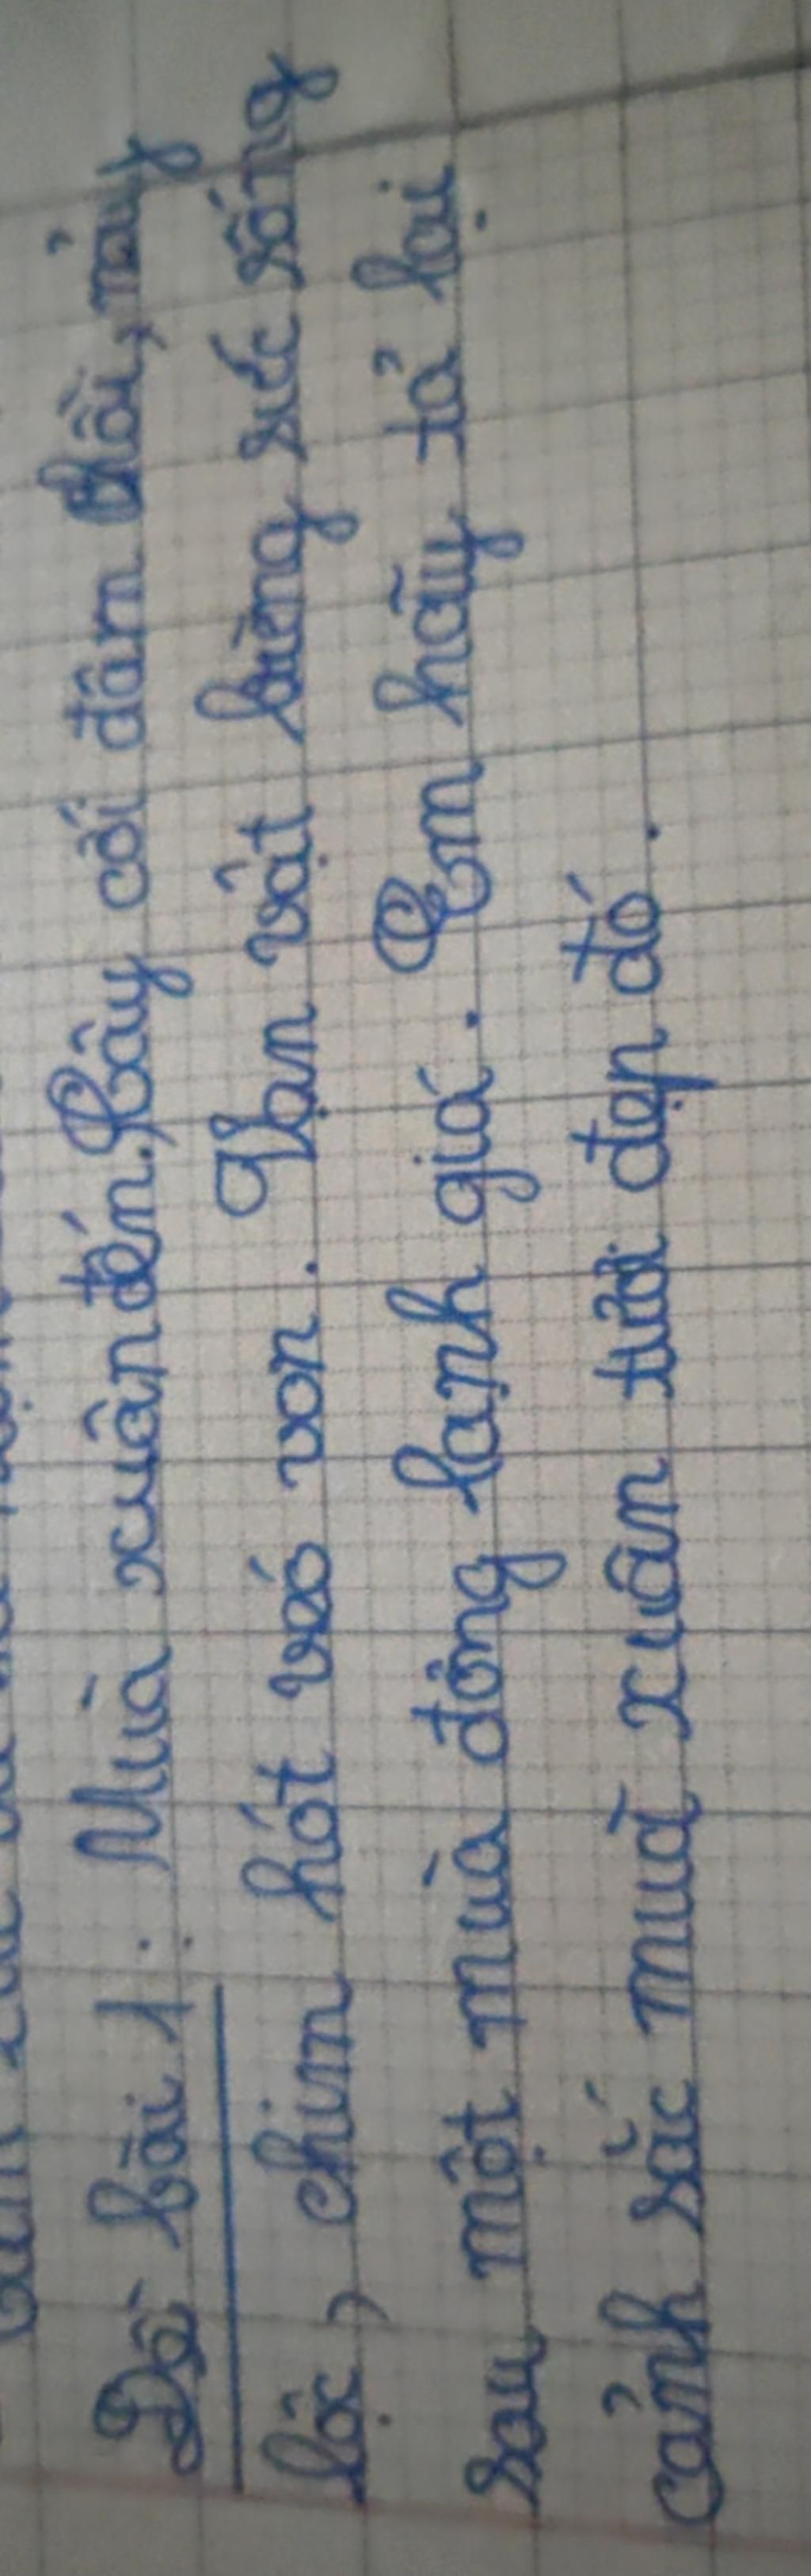 Đề bài 1: Mùa xuân đến. Cây cối đâm chồi, nảy
lộc, chim hót véo von. Vạn vật bừng sức sống
sau một mùa đông lạnh giá. Em hãy tả lại
cảnh sắc mùa xuân tươi đẹp đó.